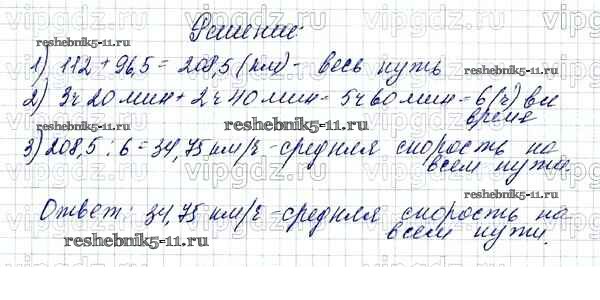 Решение
1) 112 + 96,5 = 208,5 (км) - весь путь
2) 3ч 20 мин + 2ч 40 мин = 5ч 60 мин = 6 (ч) все
время
3) 208,5 : 6 = 34,75 км/ч - средняя скорость на
всем пути.
Ответ: 34,75 км/ч - средняя скорость на
всем пути.
reshebnik5-11.ru
reshebnik5-11.ru
reshebnik5-11.ru
reshebnik5-11.ru
reshebnik5-11.ru
reshebnik5-11.ru
vipgdz.ru